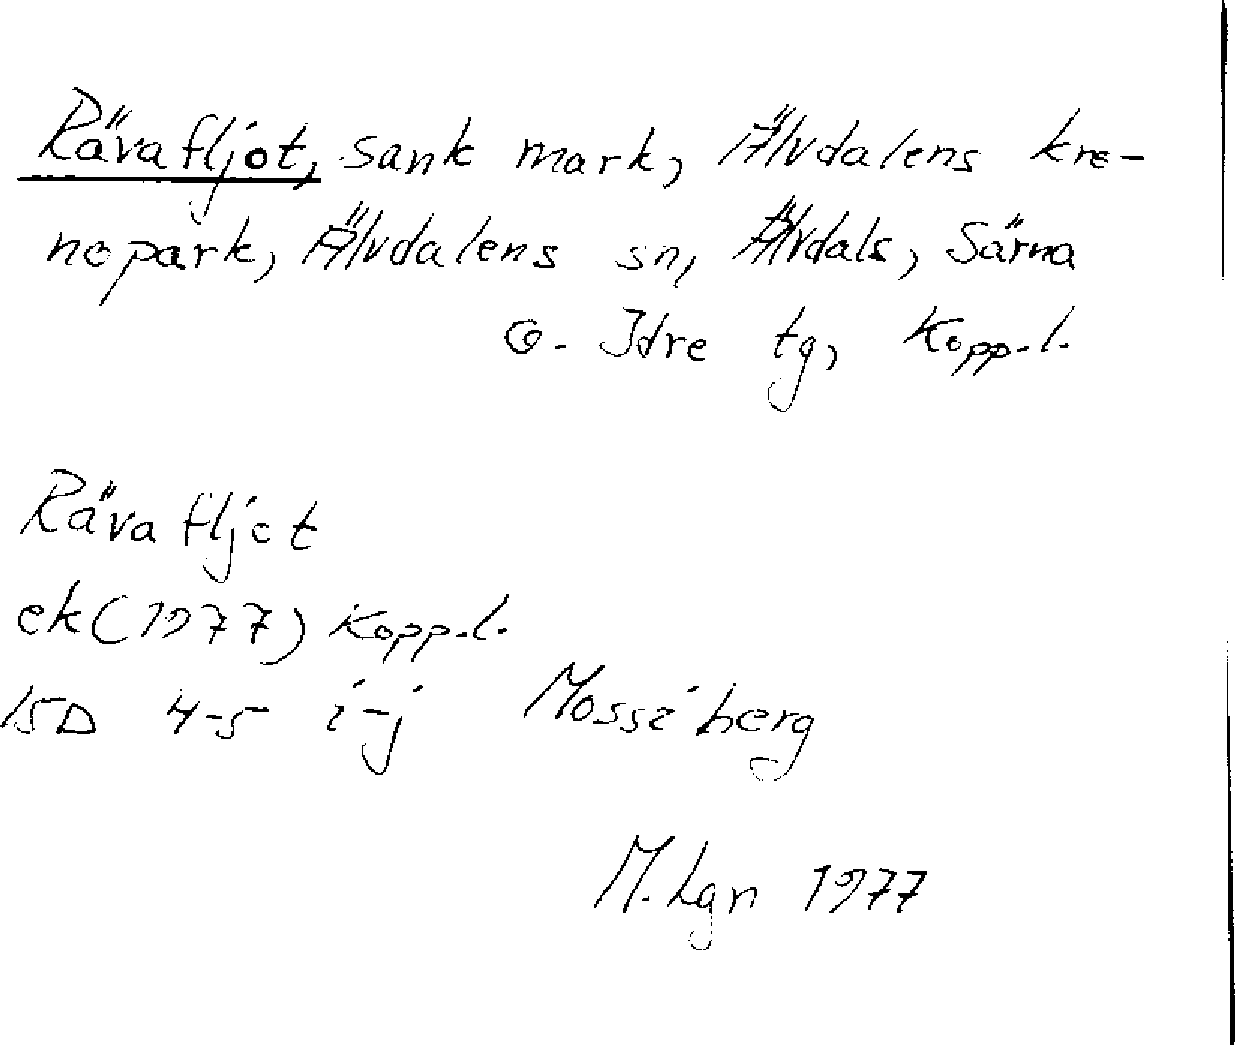 Rävafljot, sank mark, Älvdalens kro-
nopark, Älvdalens sn, Älvdals, Särna
o. Idre tg, Kopp.l.
Rävafljot
ek (1977) Kopp.l.
15D 4-5 i-j Mossiberg
M. Lgn 1977